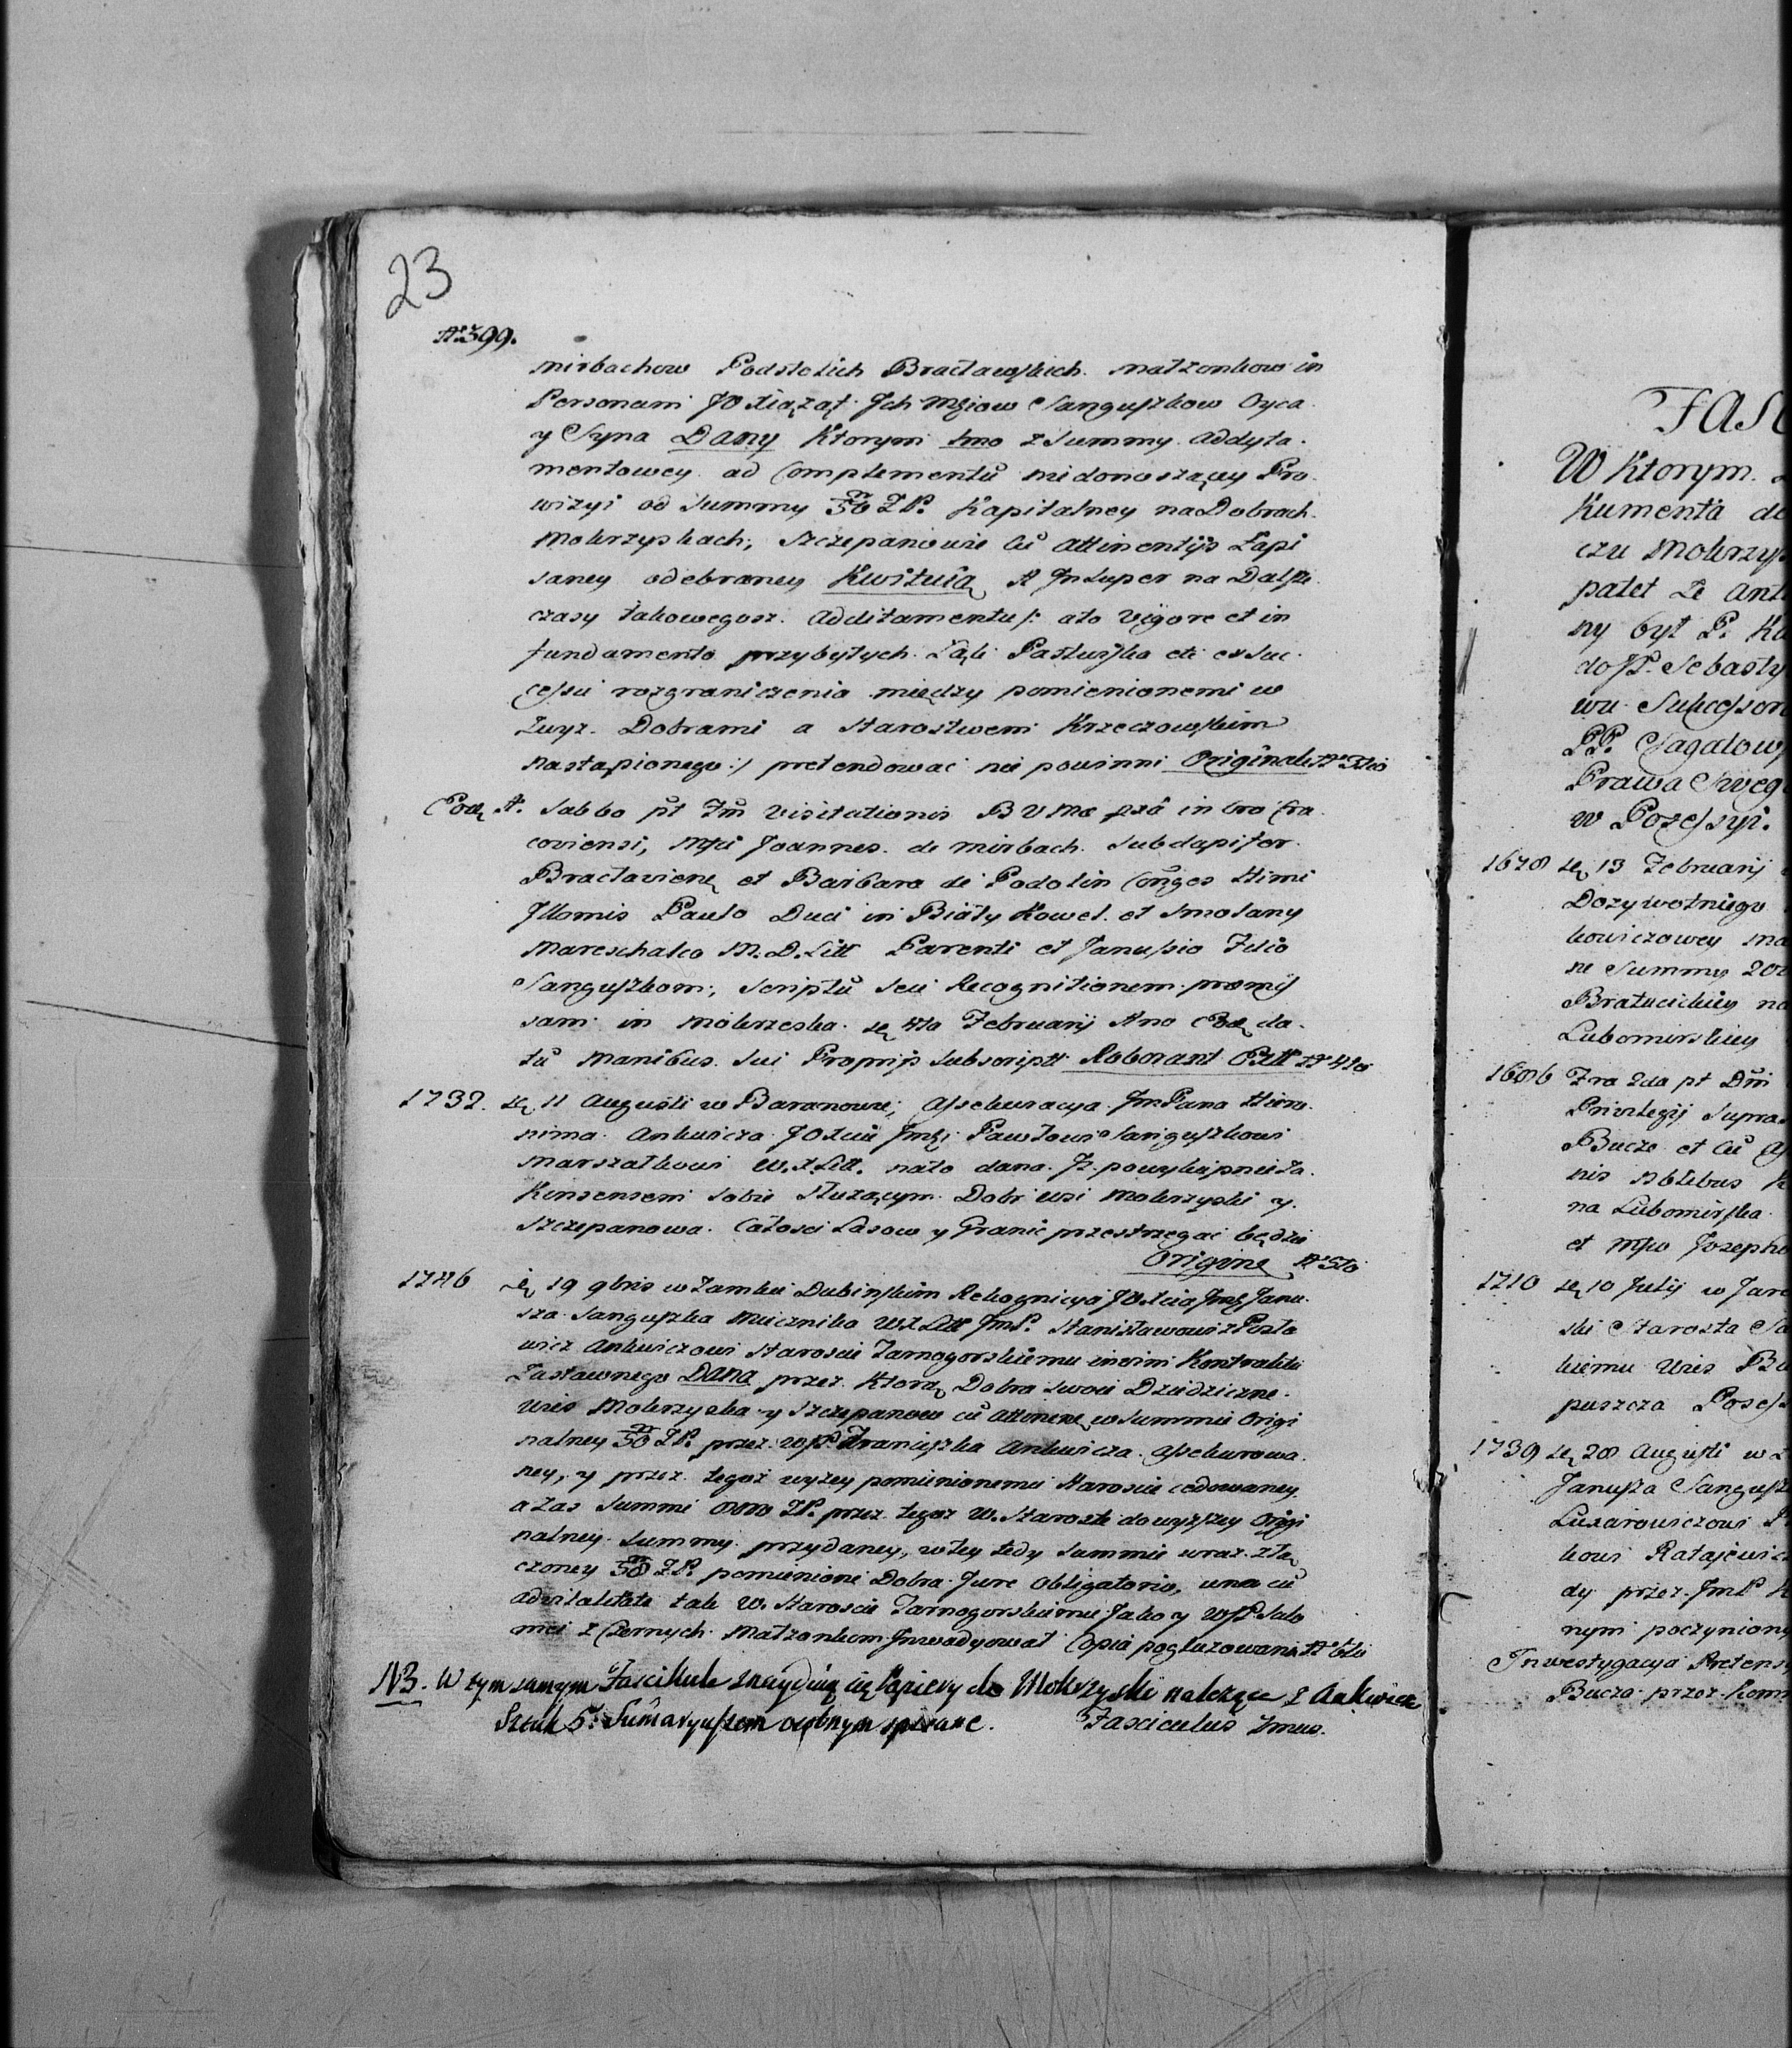 23
No 399.
Mirbachow Podstolich Bractawskich. Matzonkow in
Personam JOXiążąt Ich Mściow Sanguszkow Oyca
y Syna Dany Ktorym 1mo z Summy Addyta.
mentowey ad Complementū niedonoszącey Pro.
wizyi od Summy 50 ZP. Kapitalney na Dobrach.
Mokrzyskach, Szczepanowie cū Attinentijs Zapi
saney odebraney Kwituią A Insuper na Dalsze
czasy takowegosz Additamentu /: ato Vigore et in
fundamento przybytych Łąk Pastwiska etc ex Suc.
cessu rozgraniczenia między pomienionemi w
zwyz. Dobrami a Starostwem Krzeczowskim
nastąpionego :/ pretendować nie powinni Originale No 3tio
Eodę A. Sabbo pt Fm Visitationis B V Mae in Cro Cra
coviensi, Mfci Joannes de Mirbach Subdapifer
Bractaviensę et Barbara de Podolin Conges Illmi
Illomis Paulo Duci in Biały Kowel. et Smolany
Mareschalco M. D. Litt Parenti et Janussio Filio
Sanguszkom, Scriptū seu Recognitionem promis
sam in Mokrzeska dę 4ta Februarij Ano Eodę da.
tū Manibus Sui Proprijs subscriptā Roborant No 4to
1732. dę 11 Augusti w Baranowie, Assekuracya Im Pana Hiero.
nima Ankwicza JOXciu Jmści Pawłowi Sanguszkowi
Marszałkowi W. X Litt. na to dana. Iz powykupnieza.
Konsensem sobie słuzącym Dobr wsi Mokrzyski y
Szczepanowa Całosci Lasow y Granic przestrzegac będzie
Origine No 5to
1746 dę 19 9bris w Zamku Dubinskim Rekognicya JOXcia Jmści Janu.
sza Sanguszka Miecznika W X Litt JmP. Stanisławowi z Posla
wicz Ankwiczowi Staroscie Tarnogorskiemu invim Kontraktu
Zastawnego Dana przez Ktorą Dobra swoie Dziedziczne
wies Mokrzyska y Szczepanow cū Attinenę w Summie Origi
nalney 50 ZP. przez WJP. Franciszka Ankwicza Assekurowa.
ney, y przez tegoz wyzey pomienionemu Staroscie cedowaney
a zas Summi 8000 ZP. przez tegoz W. Staroste do wyzszey Origi
nalney Summy przydaney, wtey tedy Summie wraz złą
czoney 58 ZP. pomienione Dobra Jure Obligatorio, una cū
advitalitate tak W. Staroscie Tarnogorskiemu Jako y WJP Salo
mei z Czernych Matzonkom Inwadyował Copia pogluzowana No 6to
NB. W tym samym Fascikule znayduią się Papiery do Mokrzyski należące z Ankwicz
Sztuk 5. Sūmaryuszem osobnym spisane. Fasciculus 1mus.
FASC
W Ktorym
Kumenta de
czu Mokrzys
patet ze Ant
ny był P. Ka
do JP. Sebasty
wu Sukcessor
PP. Sagatow
Prawa Sweg
w Possessyi.
1678 dę 13 Februarij
Dozywotniego
kowiczowey Ma
ne Summy 200
Bratucickiey na
Lubomirskiey
1686 Fra 2da pt Dm
Privilegij Supra
Bucze et cū
nis
na Lubomirska
et Mfco Josepho
1710 dę 10 Julij w Jaro
ski Starosta Sa
kiemu Wies Bu
puszcza Posess
1739 dę 28 Augusti w Z
Janusza Sangusz
Luxarowiczowi
kowi Ratajewic
dy przez JmP K
nym poczyniony
Inwestygacya Pretens
Bucza przez Kom